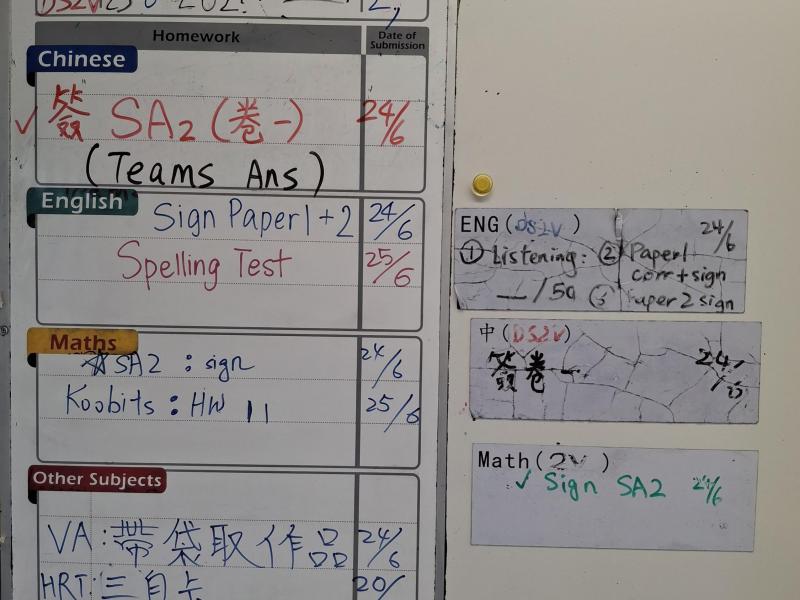 Homework
Date of Submission
Chinese
✓ 簽 SA2 (卷一) 24/6
(Teams Ans)
English
Sign Paper 1 + 2 24/6
Spelling Test 25/6
Maths
SA2 : sign 24/6
Koobits : HW 11 25/6
Other Subjects
VA: 帶袋取作品 24/6
HRT: 三自卡 20/
ENG (DS2V) 24/6
① Listening: ② Paper 1
corr + sign
__/50 ③ Paper 2 sign
中 (DS2V)
簽卷一 24/
Math (2V)
✓ Sign SA2 24/6